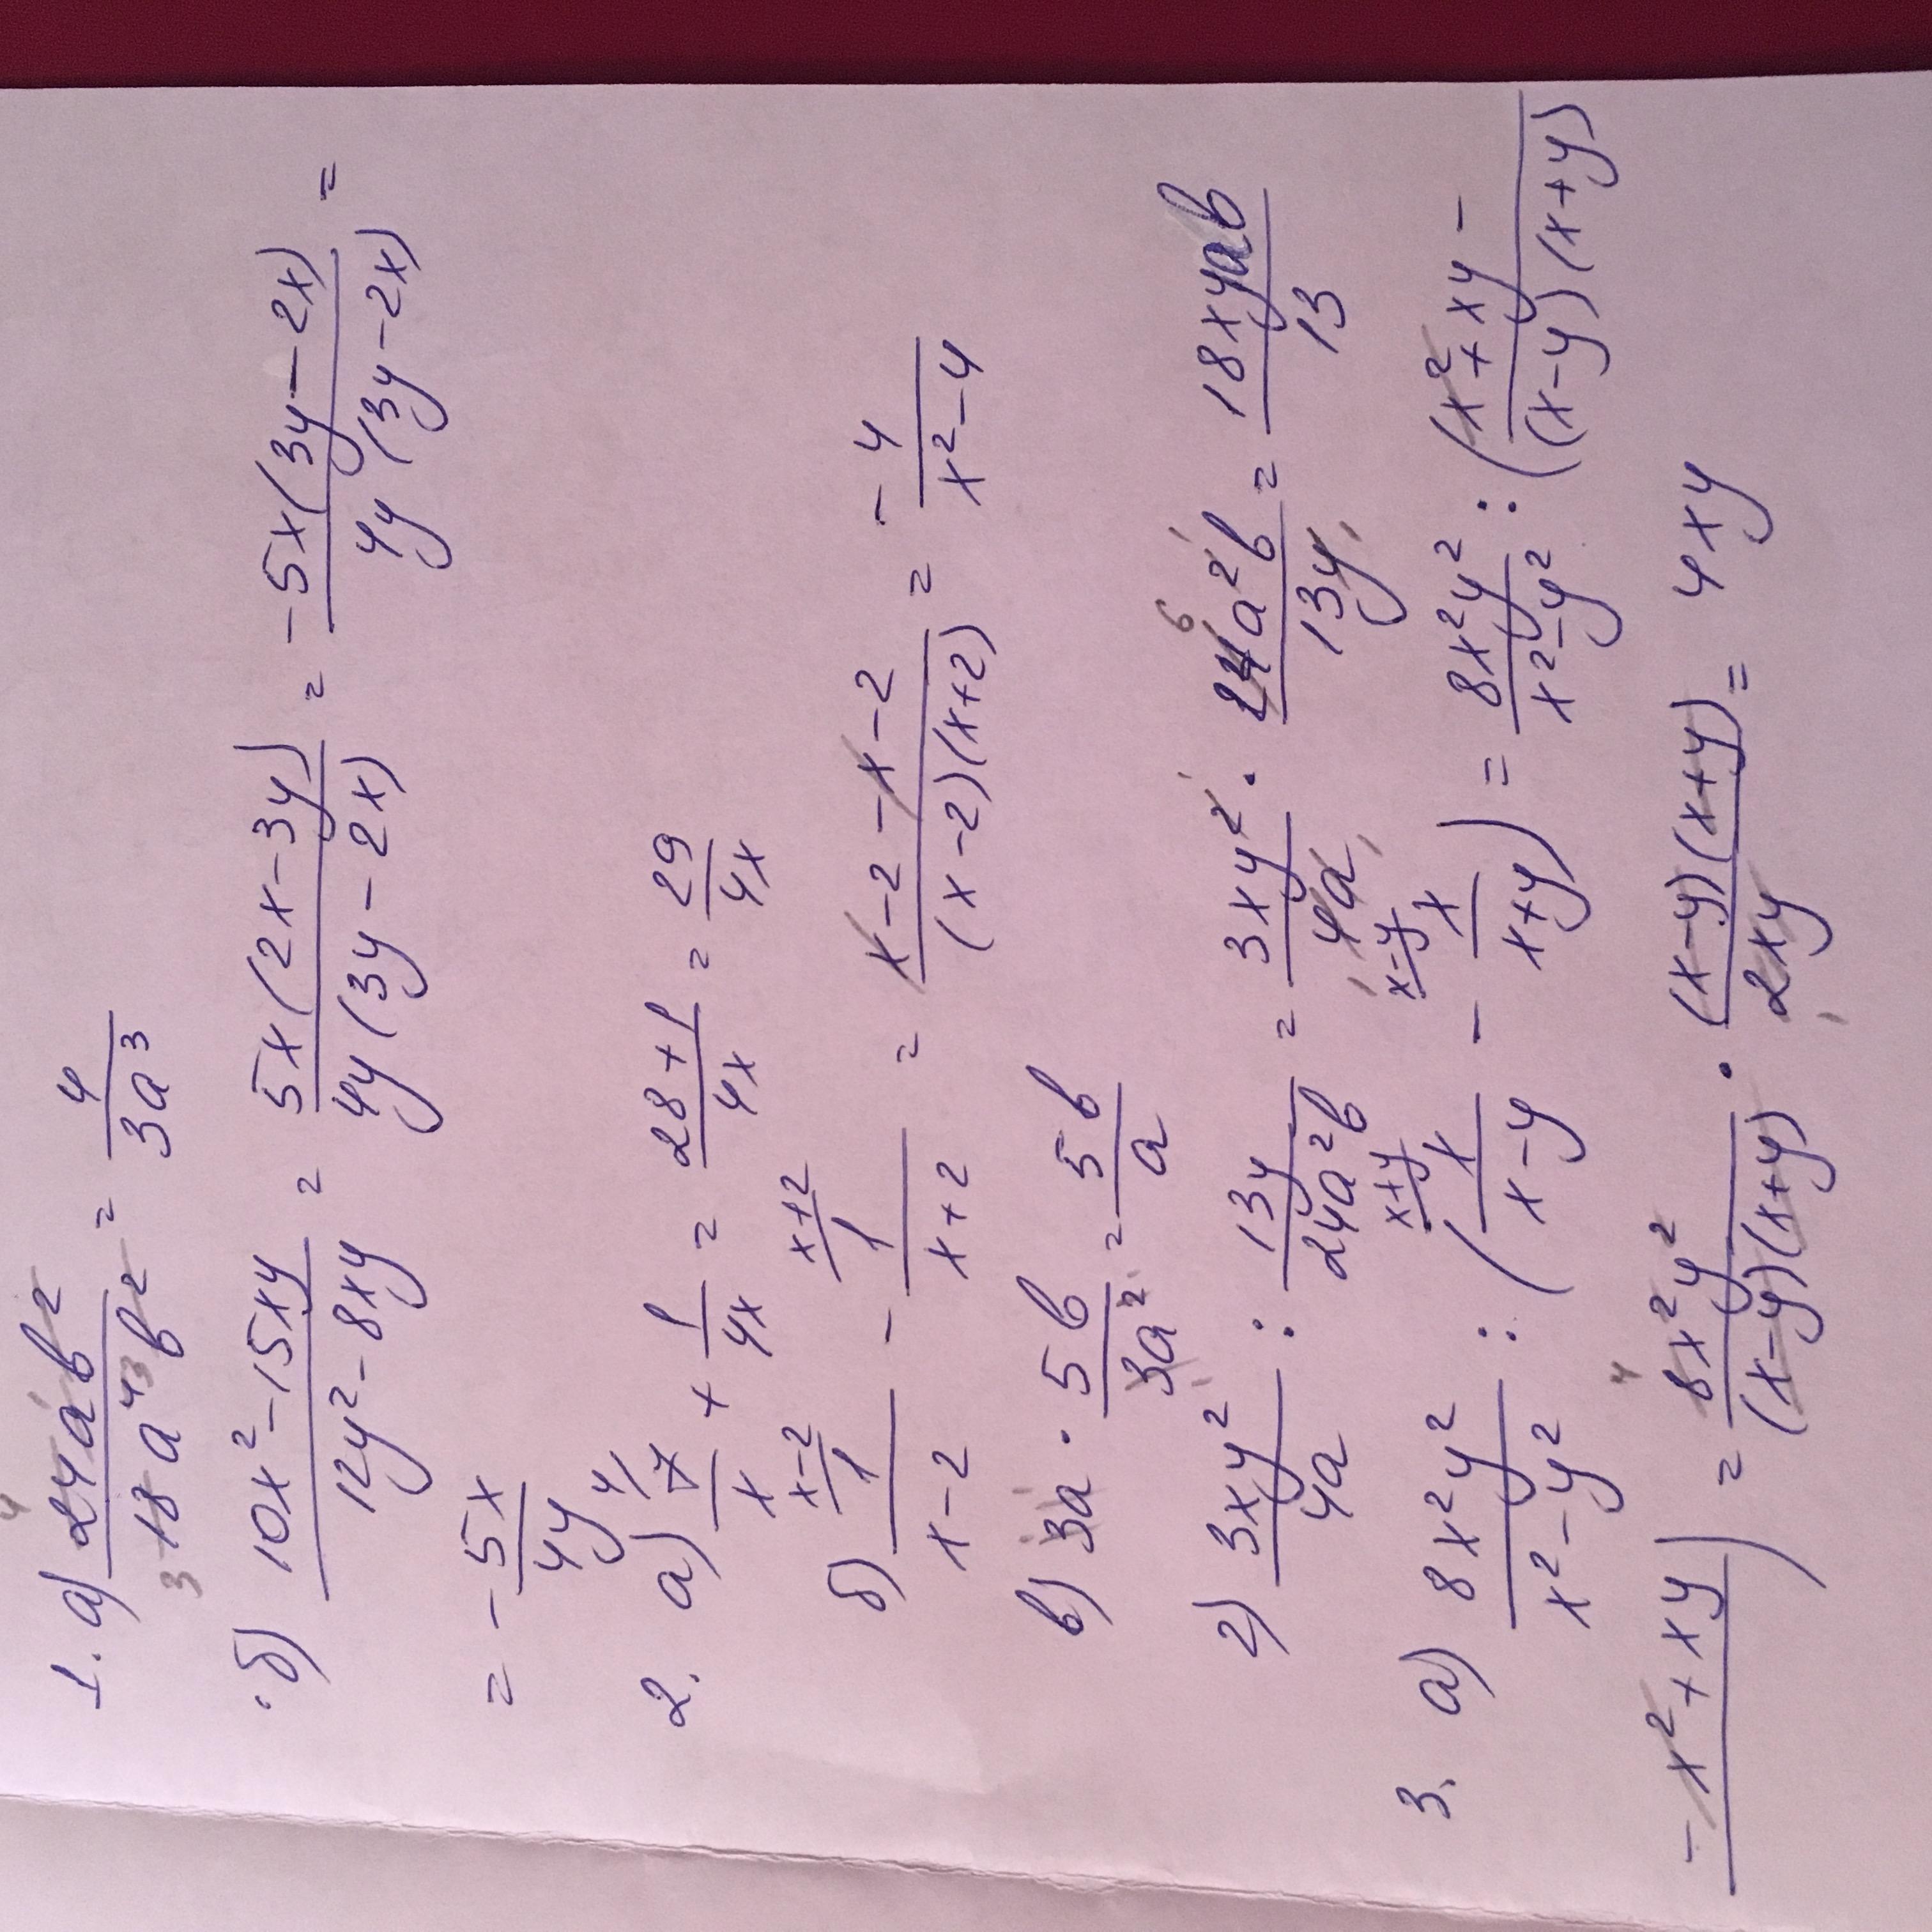 1. а) 24ab²/18a⁴b² = 4/3a³
б) (10x²-15xy)/(12y²-8xy) = 5x(2x-3y)/4y(3y-2x) = -5x(3y-2x)/4y(3y-2x) =
= -5x/4y
2. а) 7/x + 1/4x = (28+1)/4x = 29/4x
б) 1/(x-2) - 1/(x+2) = (x-2-x-2)/(x-2)(x+2) = -4/(x²-4)
в) 3a · 5b/3a² = 5b/a
г) 3xy²/4a : 13y/24a²b = 3xy²/4a · 24a²b/13y = 18xyab/13
3. а) 8x²y²/(x²-y²) : (x/(x-y) - x/(x+y)) = 8x²y²/(x²-y²) : (x²+xy-/(x-y)(x+y)
-x²+xy) = 8x²y²/(x-y)(x+y) · (x-y)(x+y)/2xy = 4xy